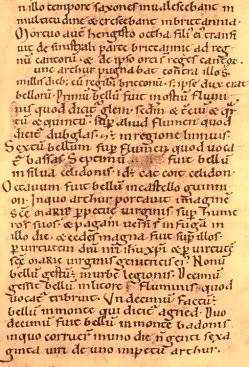 n illo tempore saxones inualescebant in
multitudine & crescebant in brittannia.
Mortuo aut hengisto octha fili' ei' transi
uit de sinistrali parte brittannie ad reg
nu cantoru. & de ipso orti s' reges cantor.
Tunc arthur pugnabat contra illos.
in illis dieb; cu regib; brittonu. s; ipse dux erat
belloru. Primu bellu fuit in ostiu flumi
nis quod dicit' glein. scdm & terciu & qr
tu & quintu. sup aliud flumen quod
dicit' dubglas. & in regione linnuis.
Sextu bellum sup flumen quod uocat'
bassas. Septimu fuit bellu
in silua celidonis. id e cat coit celidon.
Octauum fuit bellu in castello guinni
on. In quo arthur portauit imagine
sce marie ppetue uirginis sup hume
ros suos. & pagani uersi s' in fuga in
illo die. & cedes magna fuit sup illos.
p uirtute dni nri ihu xpi & p uirtute
sce marie uirginis genitricis ei'. Nonu
bellu gestu e in urbe legionis. Decimu
gessit bellu in litore fluminis quod
uocat' tribruit. Undecimu factu e
bellu in monte qui dicit' agned. Duo
decimu fuit bellu in monte badonis.
in quo corruer' in uno die n genti sexa
ginta uiri de uno impetu arthur.